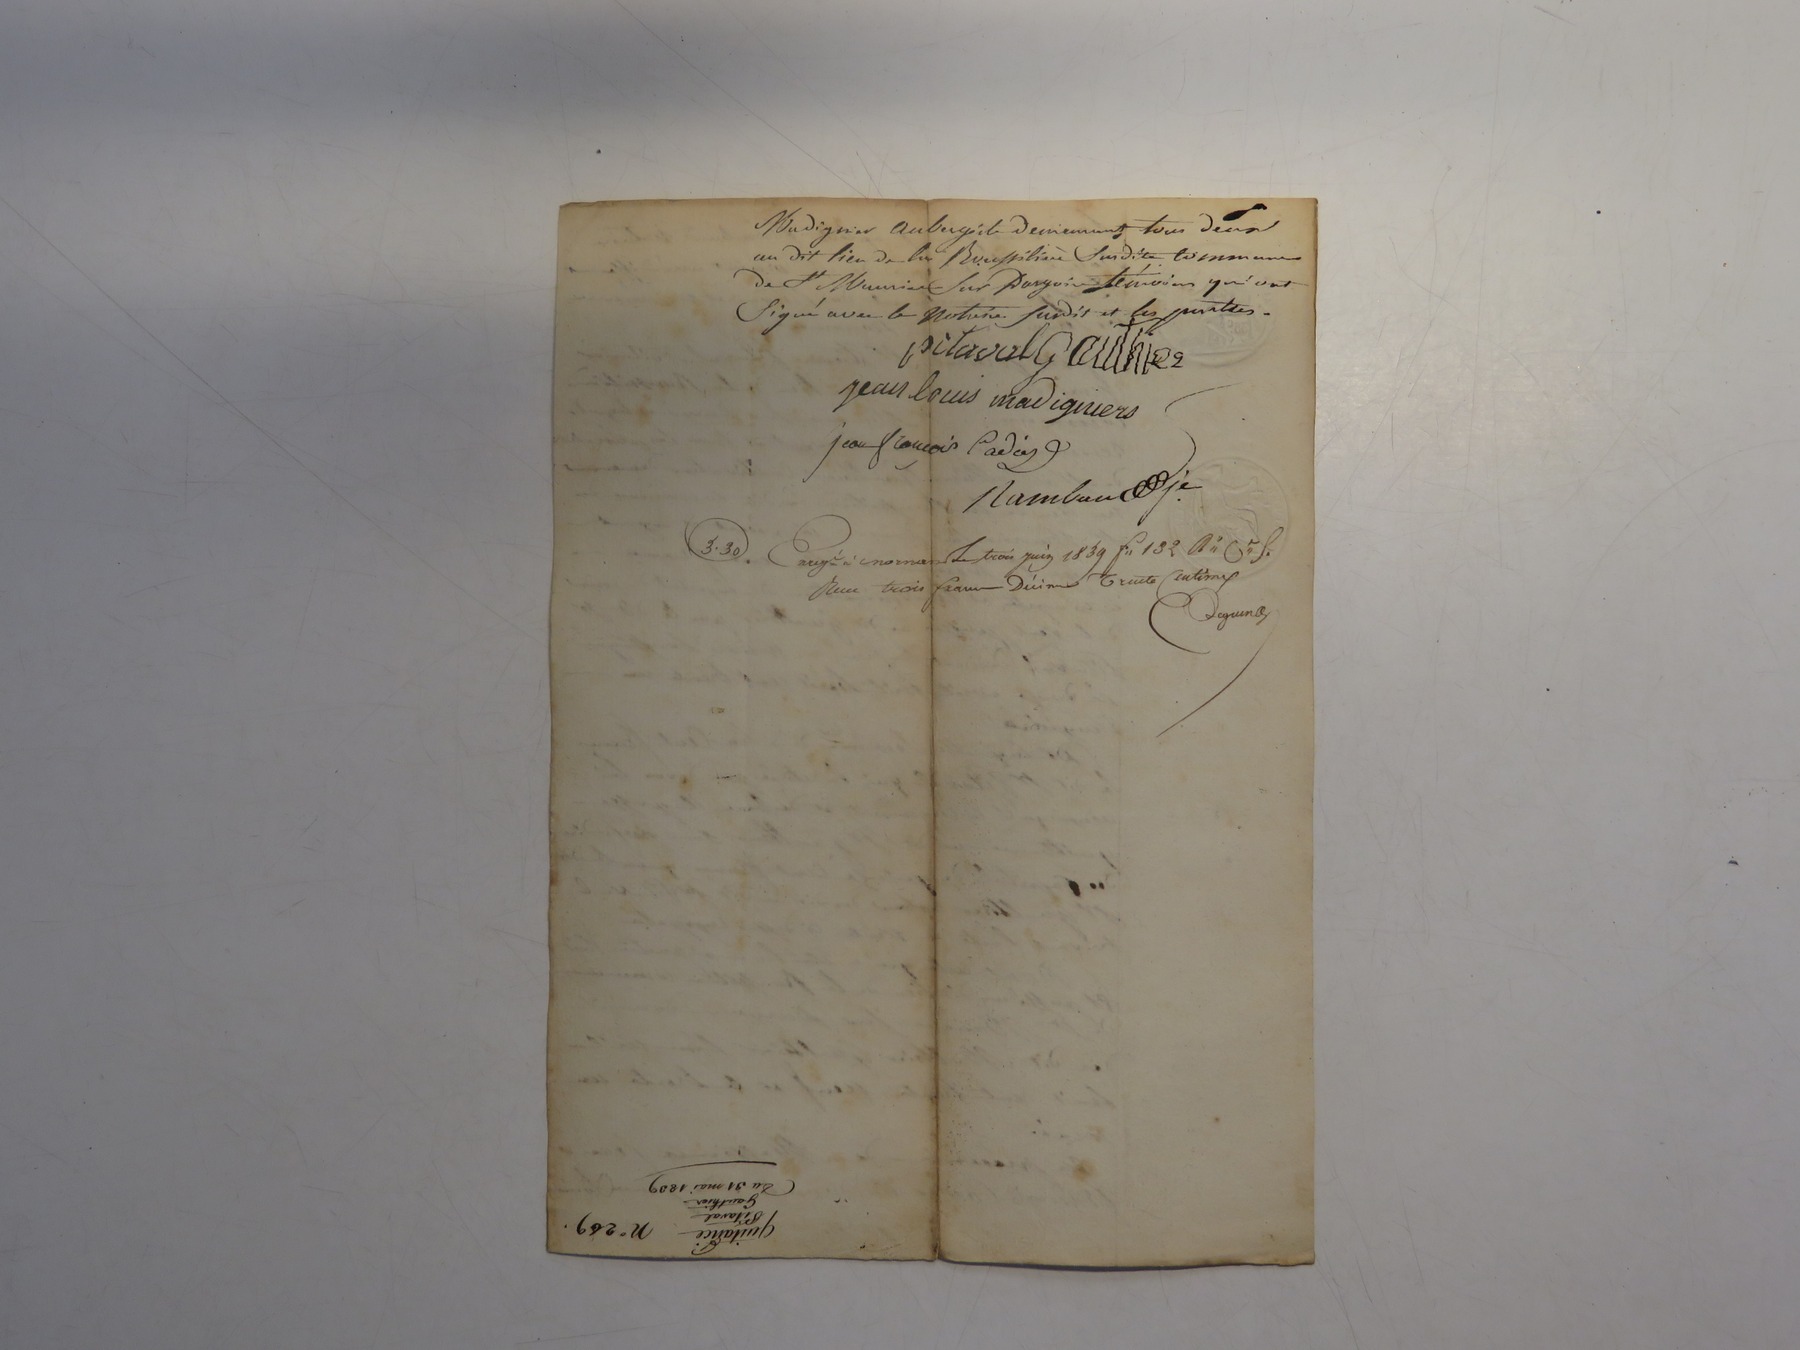 Madignier aubergiste demeurant tous deux
au dit lieu de la Roussilière susdite commune
de St Maurice sur Dargoire témoins qui ont
Signé avec le Notaire susdit et les parties.
pitaval Gauthier
jean louis madigniers
jean françois
3.30
Enregé à mornant Le trois juin 1839 fo 132
Reçu trois francs Décime Trente Centimes
quitance
pr
Pitaval
Gauthier
Du 31 mai 1839
No 269.